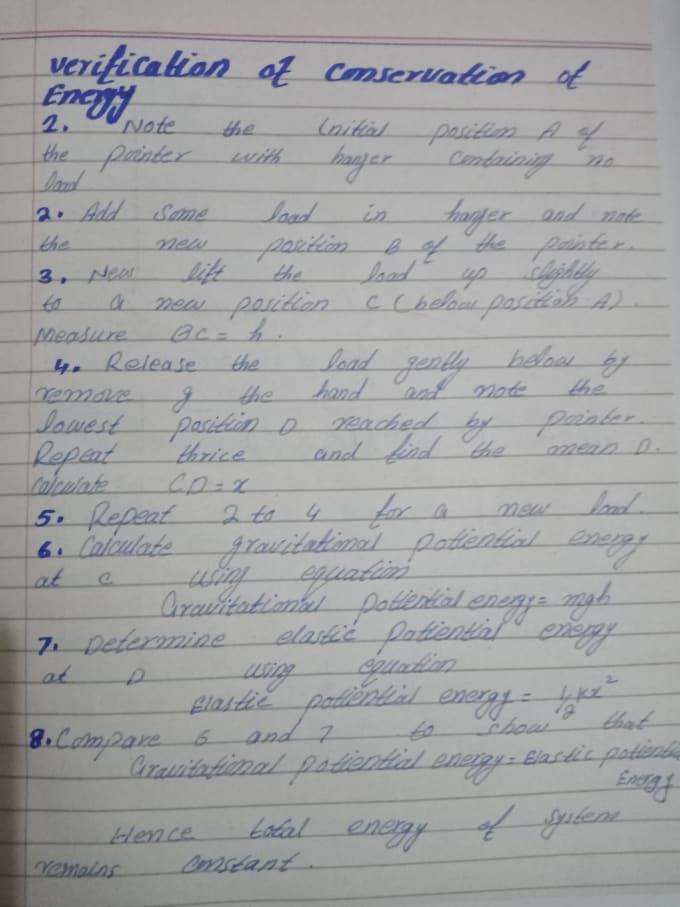 verification of conservation of
Energy
1. Note the initial position A of
the pointer with hanger containing no
load
2. Add some load in hanger and note
the new position B of the pointer.
3. New lift the load up slightly
to a new position C (below position A).
Measure BC = h.
4. Release the load gently below by
remove g the hand and note the
lowest position D reached by pointer.
Repeat thrice and find the mean D.
Calculate CD = x
5. Repeat 2 to 4 for a new load.
6. Calculate gravitational potiential energy
at c using equation
Gravitational pottential energy = mgh
7. Determine elastic patiential energy
at D using equation
Elastic potiential energy = 1/2 kx²
8. Compare 6 and 7 to show that
Gravitational potiential energy = Elastic potiential
Energy
Hence total energy of system
remains constant.